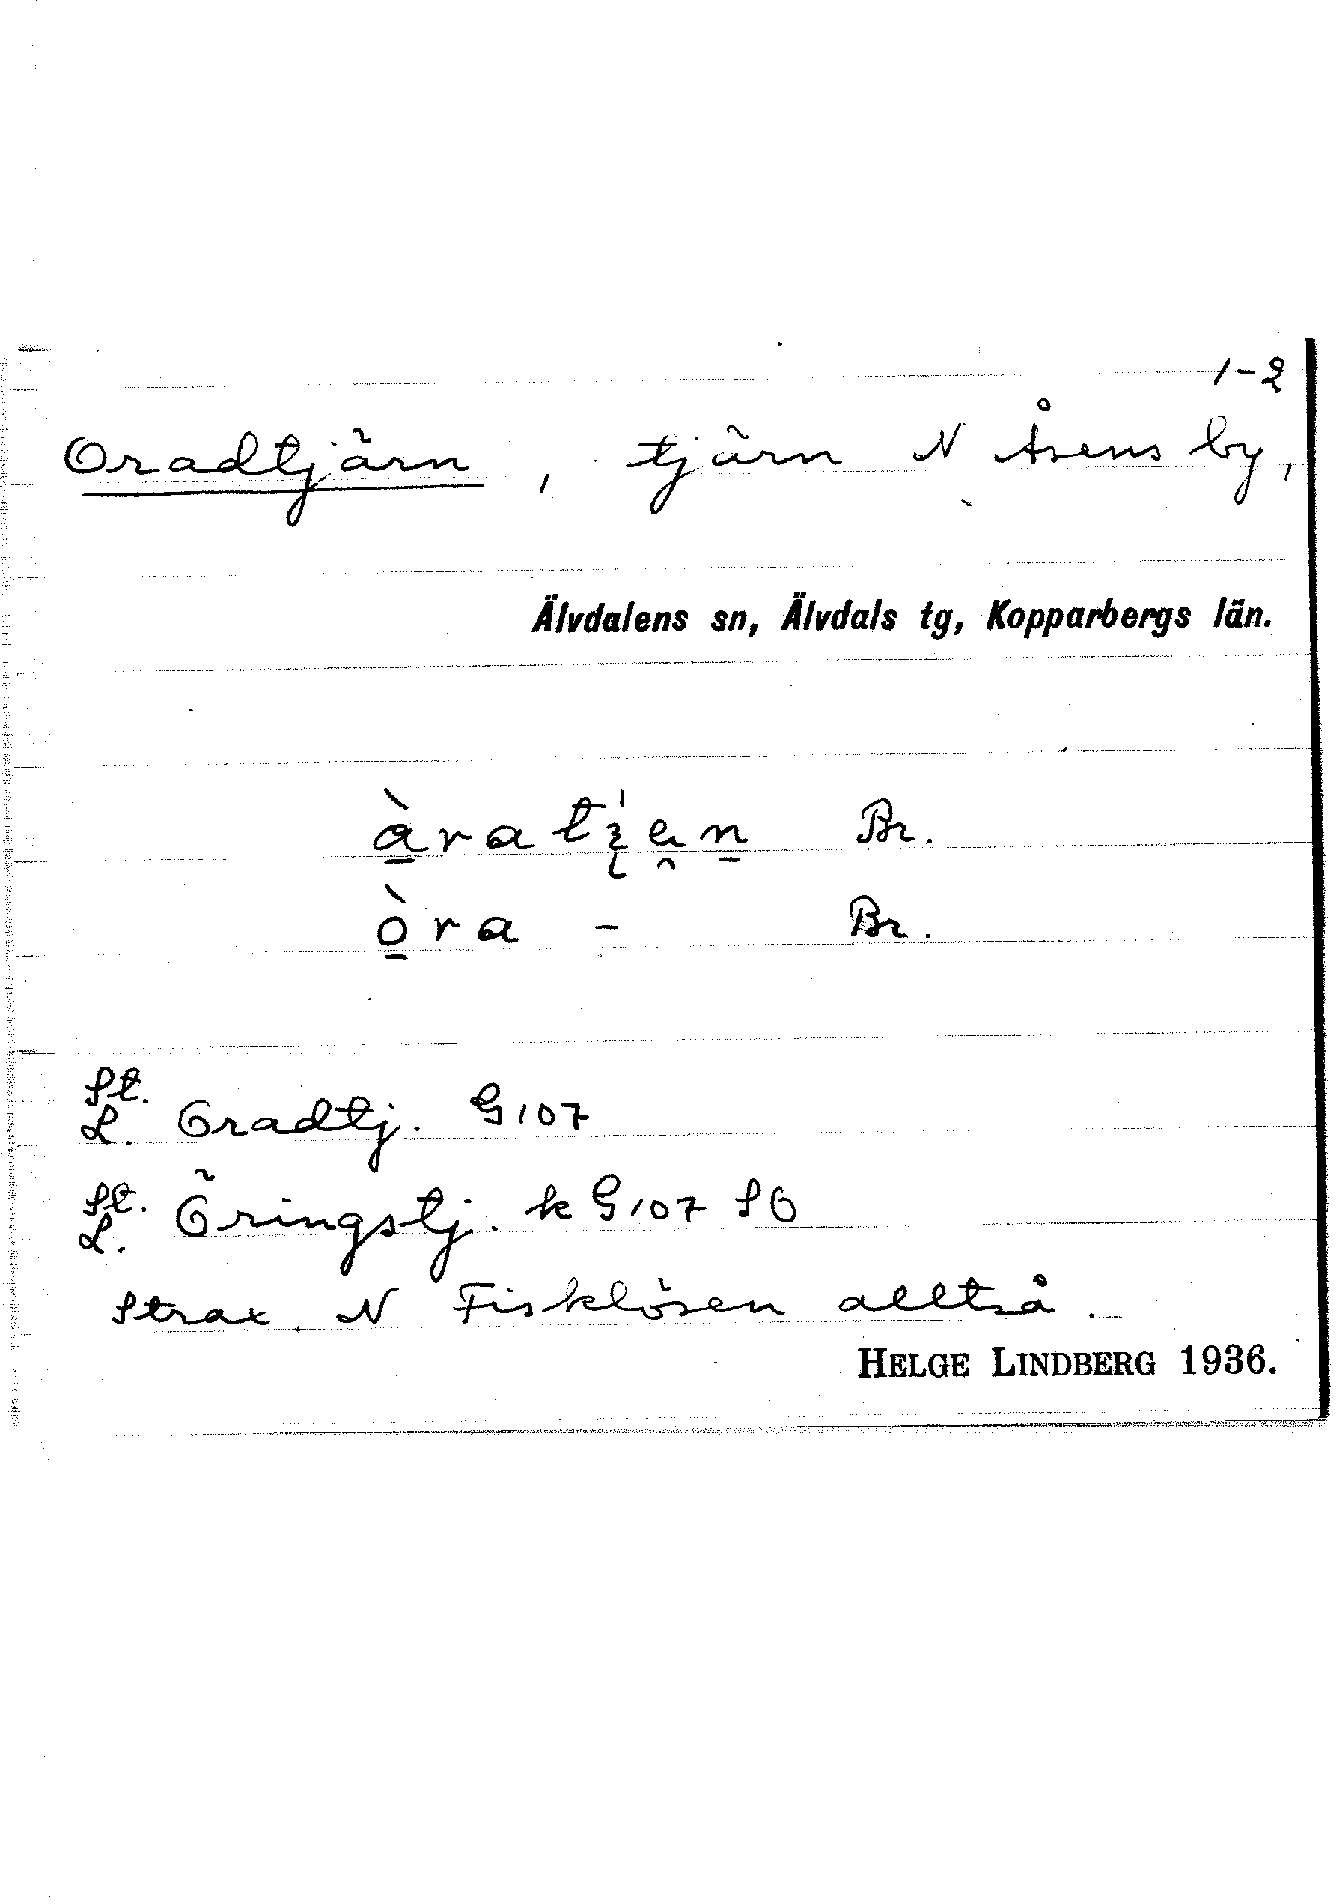 1-2
Oradtjärn, tjärn N Åsens by,
Älvdalens sn, Älvdals tg, Kopparbergs län.
Br.
òra - Br.
St.
L. Oradtj. G107
St.
L. Öringstj. k G107 SO
Strax N Fisklösen alltså.
HELGE LINDBERG 1936.